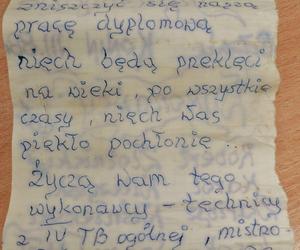 zniszczyć się naszą
pracę dyplomową
niech będą przeklęci
na wieki, po wszystkie
czasy, niech was
piekło pochłonie...
Życzą wam tego
wykonawcy - technicy
z IV TB ogólnej, mistro-